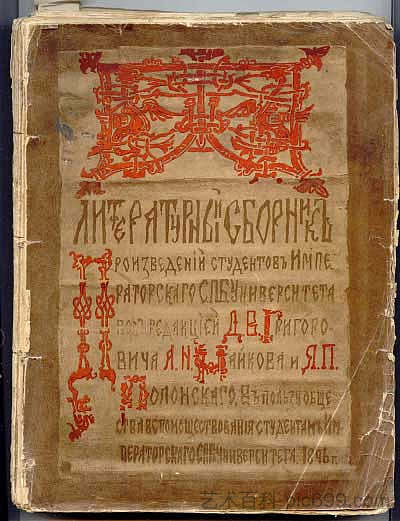 ЛИТЕРАТУРНЫЙ СБОРНИКЪ
ПРОИЗВЕДЕНІЙ СТУДЕНТОВЪ ИМПЕ
РАТОРСКАГО СПБ. УНИВЕРСИТЕТА
ПОДЪ РЕДАКЦІЕЙ Д. В. ГРИГОРО
ВИЧА А. Н. МАЙКОВА И Я. П.
ПОЛОНСКАГО. ВЪ ПОЛЬЗУ ОБЩЕ
СТВА ВСПОМОЩЕСТВОВАНІЯ СТУДЕНТАМЪ ИМ
ПЕРАТОРСКАГО СПБ. УНИВЕРСИТЕТА. 1896 г.
艺术百科